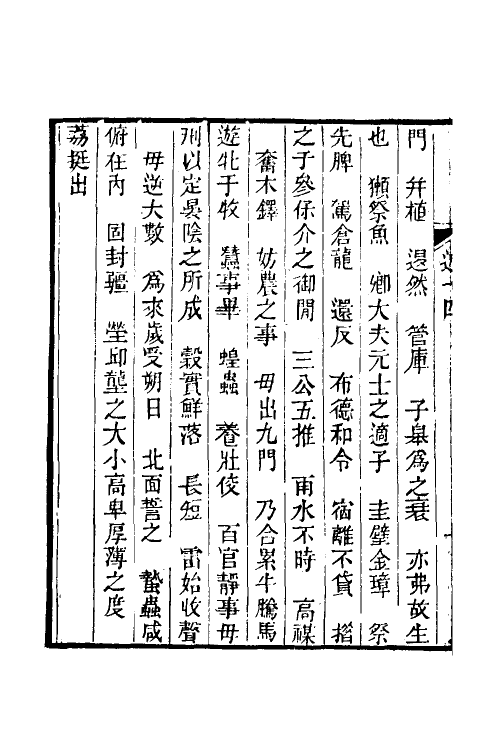 門　幷植　退然　管庫　子臯爲之衰　亦弗故生
也　獺祭魚　卿大夫元士之適子　圭璧金璋　祭
先脾　駕倉龍　還反　布德和令　宿離不貸　措
之于參保介之御閒　三公五推　雨水不時　高禖
奮木鐸　妨農之事　毋出九門　乃合累牛騰馬
遊牝于牧　蠶事畢　蝗蟲　養壯佼　百官靜事毋
刑以定晏陰之所成　穀實鮮落　長短　雷始收聲
毋逆大數　爲來歲受朔日　北面誓之　蟄蟲咸
俯在內　固封疆　塋邱壟之大小高卑厚薄之度
荔挺出